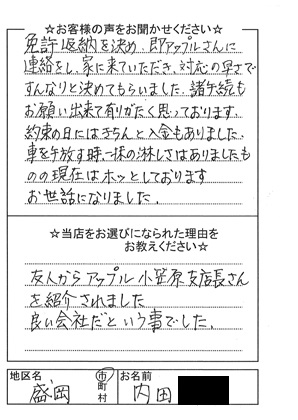 ☆お客様の声をお聞かせください☆
免許返納を決め、即アップルさんに
連絡をし、家に来ていただき、対応の早さで
すんなりと決めてもらいました。諸手続も
お願い出来て有りがたく思っております。
約束の日にはきちんと入金もありました。
車を手放す時、一抹の淋しさはありましたも
のの現在はホッとしております
お世話になりました。
☆当店をお選びになられた理由を
お教えください☆
友人からアップル小笠原支店長さん
を紹介されました
良い会社だという事でした。
地区名 盛岡 市町村 お名前 内田